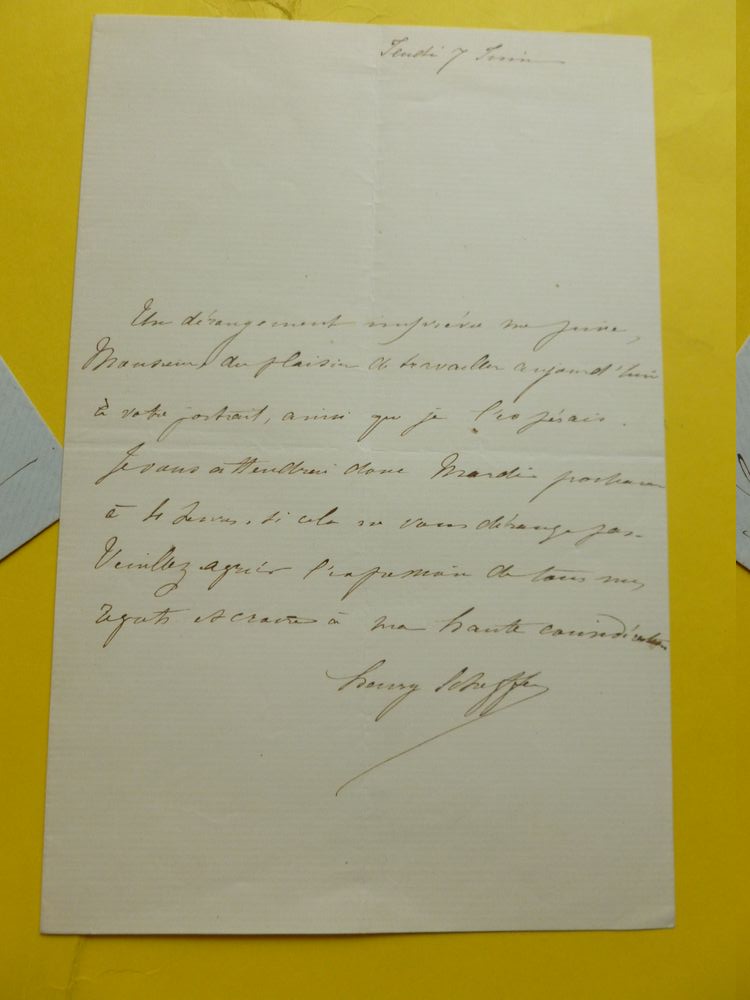 Jeudi 7 Juin
Un dérangement imprévu me prive,
Monsieur, du plaisir de travailler aujourd'hui
à votre portrait, ainsi que je l'espérais.
Je vous attendrai donc Mardi prochain
à 4 heures, si cela ne vous dérange pas.
Veuillez agréer l'expression de tous mes
regrets et croire à ma haute considération
henry Scheffer